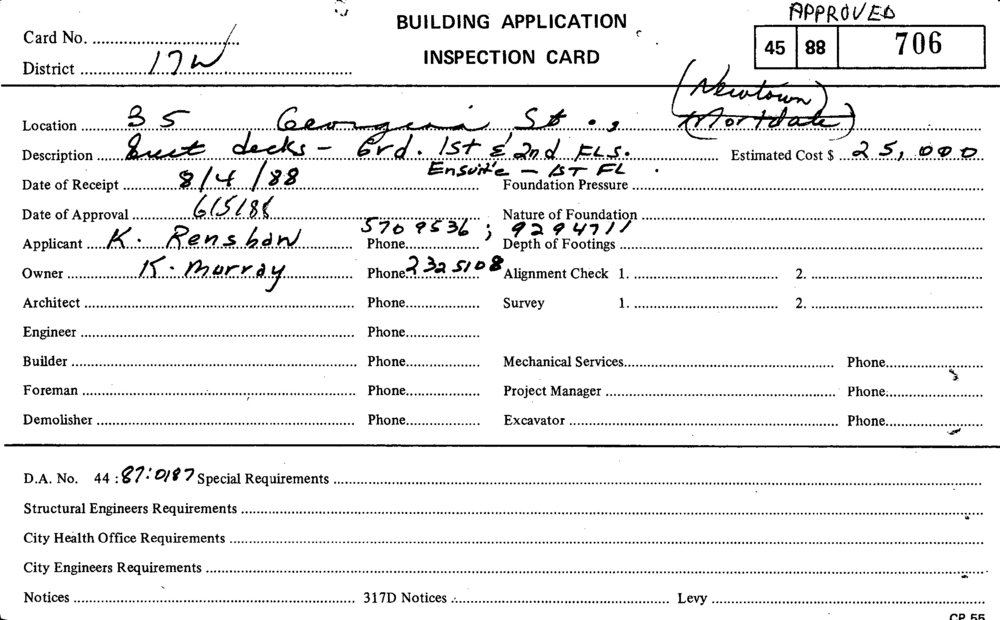 APPROVED
BUILDING APPLICATION
INSPECTION CARD
45 88 706
Card No.
District 17W
(Newtown)
Location 35 Georgina St., (Mortdale)
Description Erect decks - Grd. 1st & 2nd FLS. Estimated Cost $ 25,000
Ensuite - 1ST FL.
Date of Receipt 8/4/88 Foundation Pressure
Date of Approval 6/5/88 Nature of Foundation
Applicant K. Renshaw Phone 570 9536; 929 4711 Depth of Footings
Owner K. Murray Phone 232 5108 Alignment Check 1. 2.
Architect Phone Survey 1. 2.
Engineer Phone
Builder Phone Mechanical Services Phone
Foreman Phone Project Manager Phone
Demolisher Phone Excavator Phone
D.A. No. 44 : 87:0187 Special Requirements
Structural Engineers Requirements
City Health Office Requirements
City Engineers Requirements
Notices 317D Notices Levy
CP 55